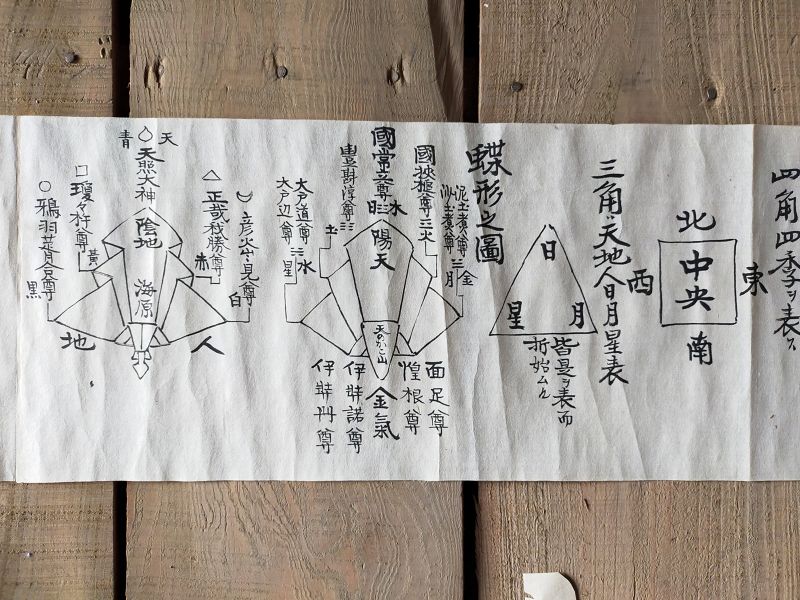 四角四季ヲ表ス
北
東
中央
西
南
三角ハ天地人日月星表
日
月
星
皆是ヲ表而
折始ムル
蝶形之圖
泥土煮尊
沙土煮尊
金
三月
國狭槌尊
三火
國常立尊
水
豊斟渟尊
土
大戸道尊
大戸辺尊
水
星
陽天
天のかご山
金氣
面足尊
惶根尊
伊弉諾尊
伊弉冊尊
彦火々出見尊
白
△
正哉我勝尊
赤
天
青
天照大神
陰地
海原
□
瓊々杵尊
黄
○
鵜羽葺合尊
黒
人
地